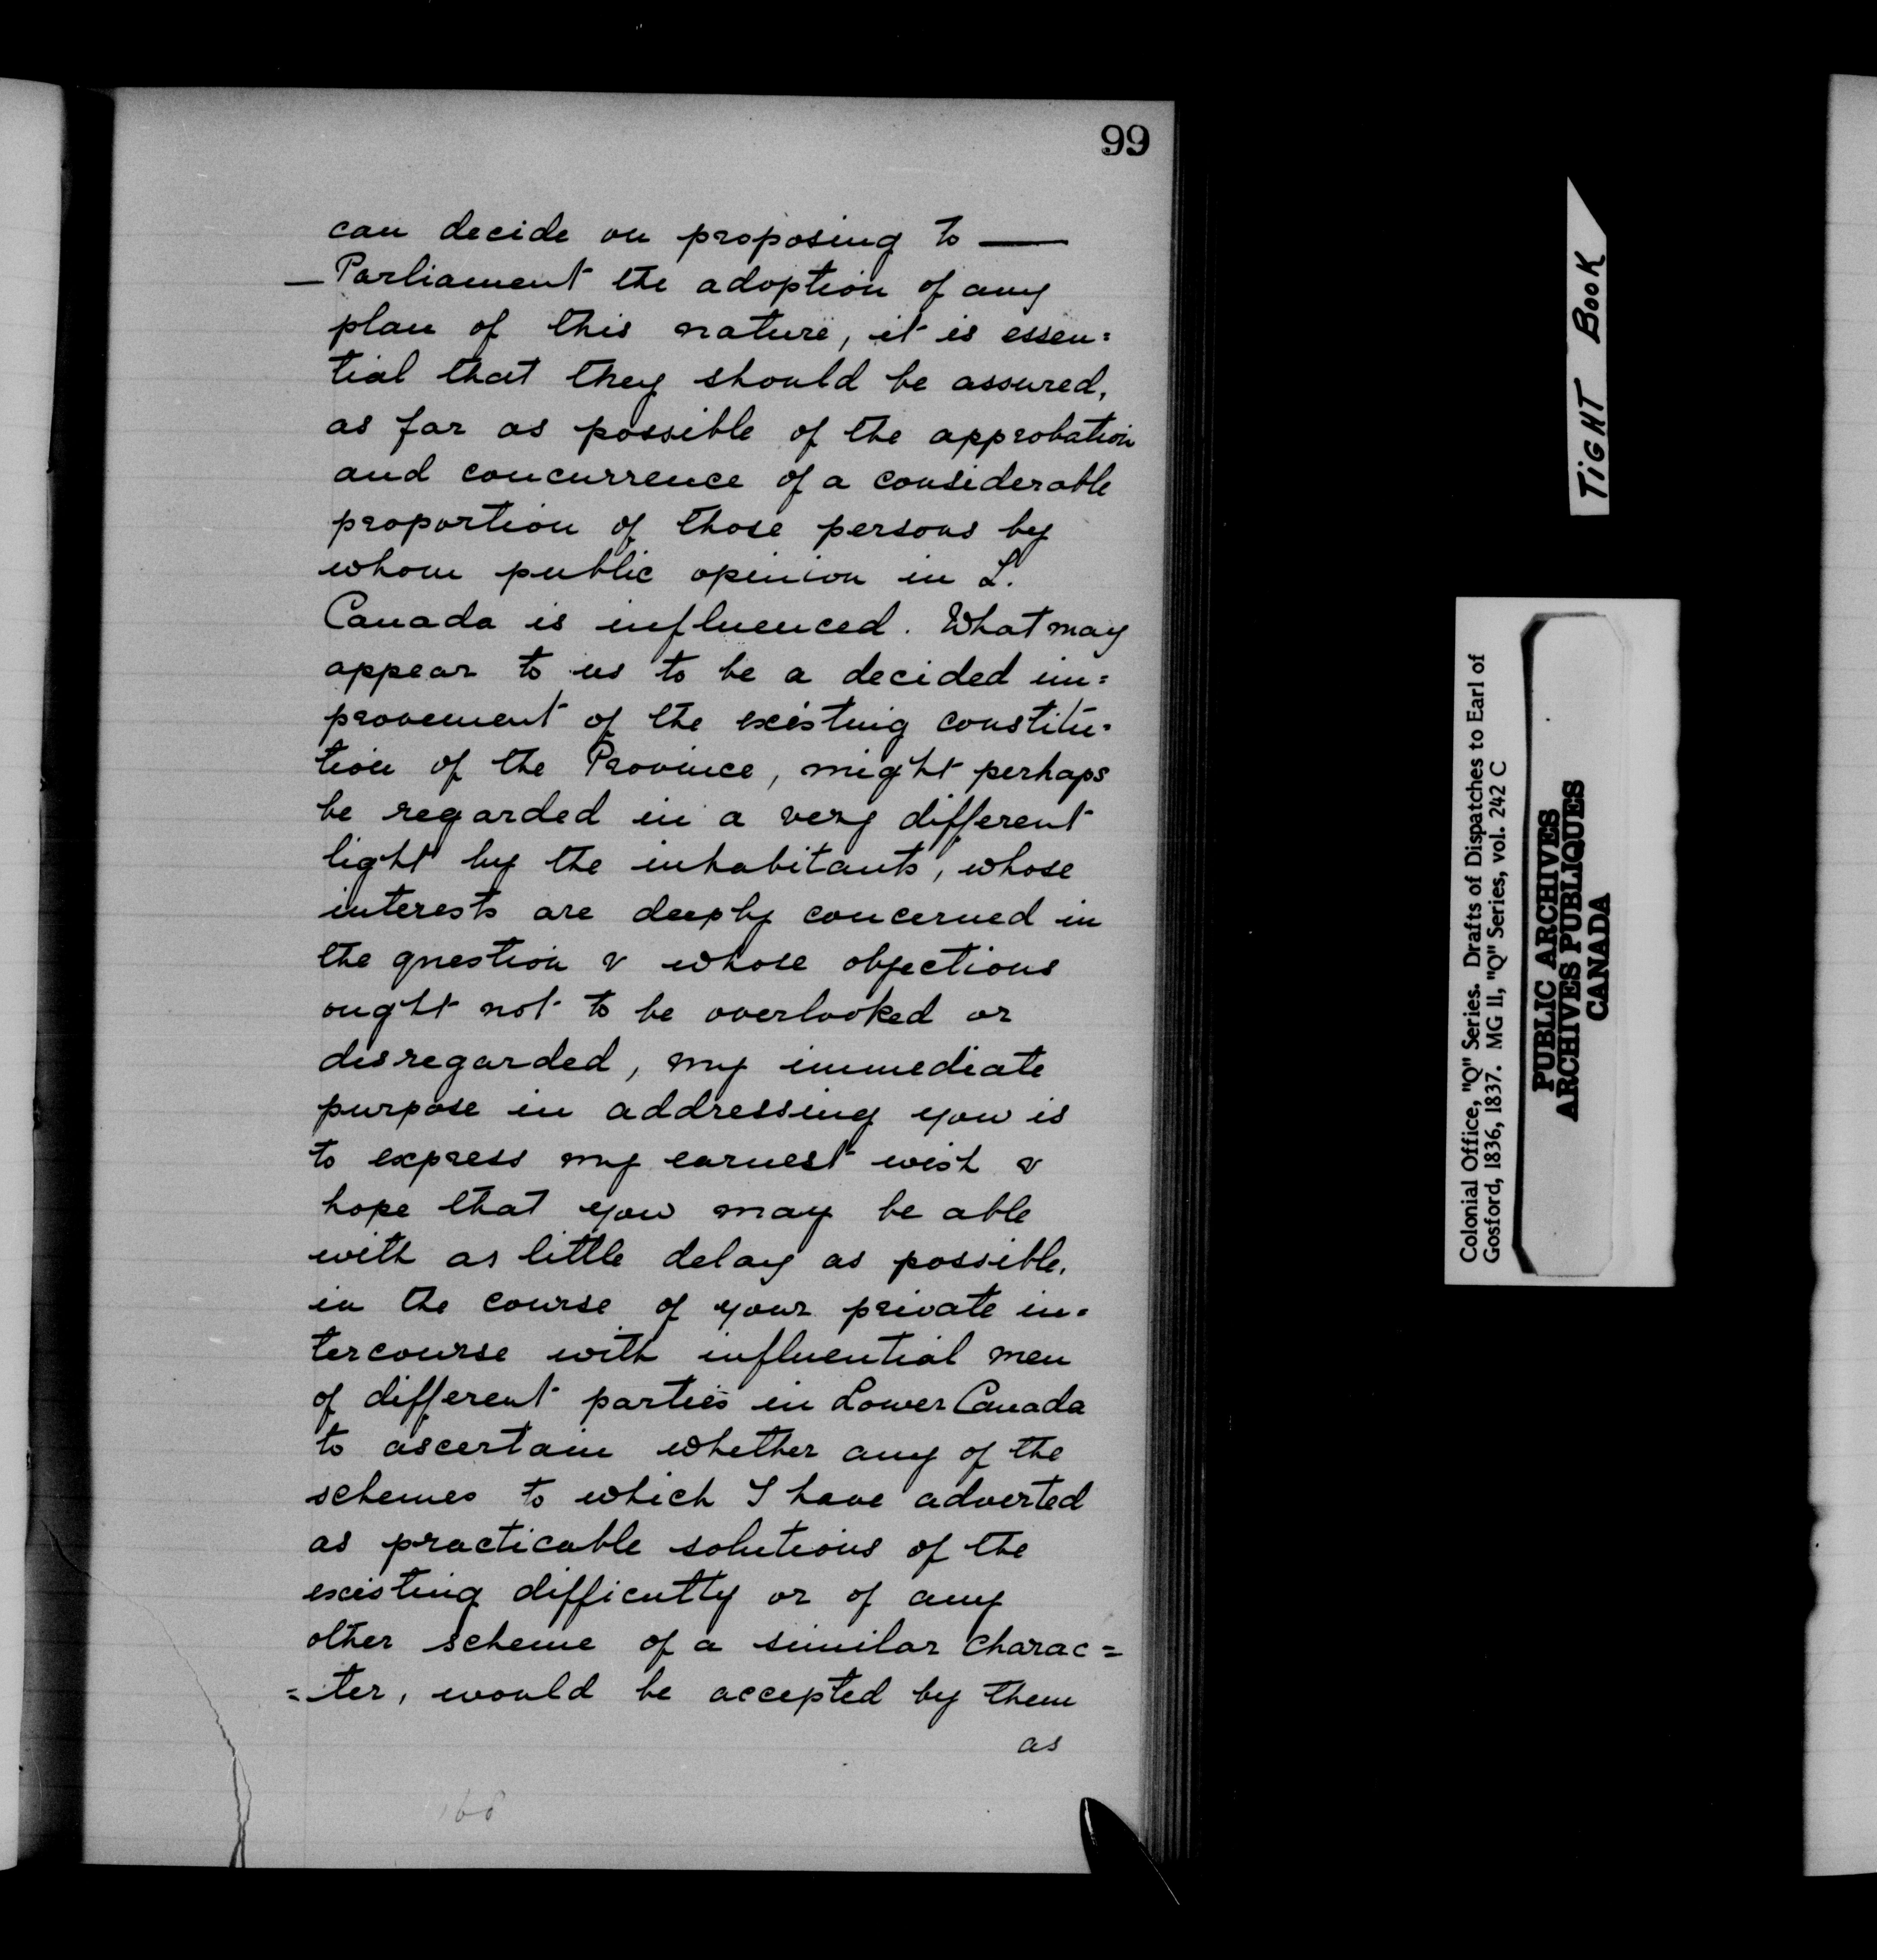 99
can decide on proposing to —
— Parliament the adoption of any
plan of this nature, it is essen=
tial that they should be assured,
as far as possible of the approbation
and concurrence of a considerable
proportion of those persons by
whom public opinion in L.
Canada is influenced. What may
appear to us to be a decided im=
provement of the existing constitu=
tion of the Province, might perhaps
be regarded in a very different
light by the inhabitants, whose
interests are deeply concerned in
the question & whose objections
ought not to be overlooked or
disregarded, my immediate
purpose in addressing you is
to express my earnest wish &
hope that you may be able
with as little delay as possible,
in the course of your private in=
tercourse with influential men
of different parties in Lower Canada
to ascertain whether any of the
schemes to which I have adverted
as practicable solutions of the
existing difficulty or of any
other scheme of a similar charac=
=ter, would be accepted by them
as
168
TIGHT BOOK
Colonial Office, "Q" Series. Drafts of Dispatches to Earl of
Gosford, 1836, 1837. MG 11, "Q" Series, vol. 242 C
PUBLIC ARCHIVES
ARCHIVES PUBLIQUES
CANADA